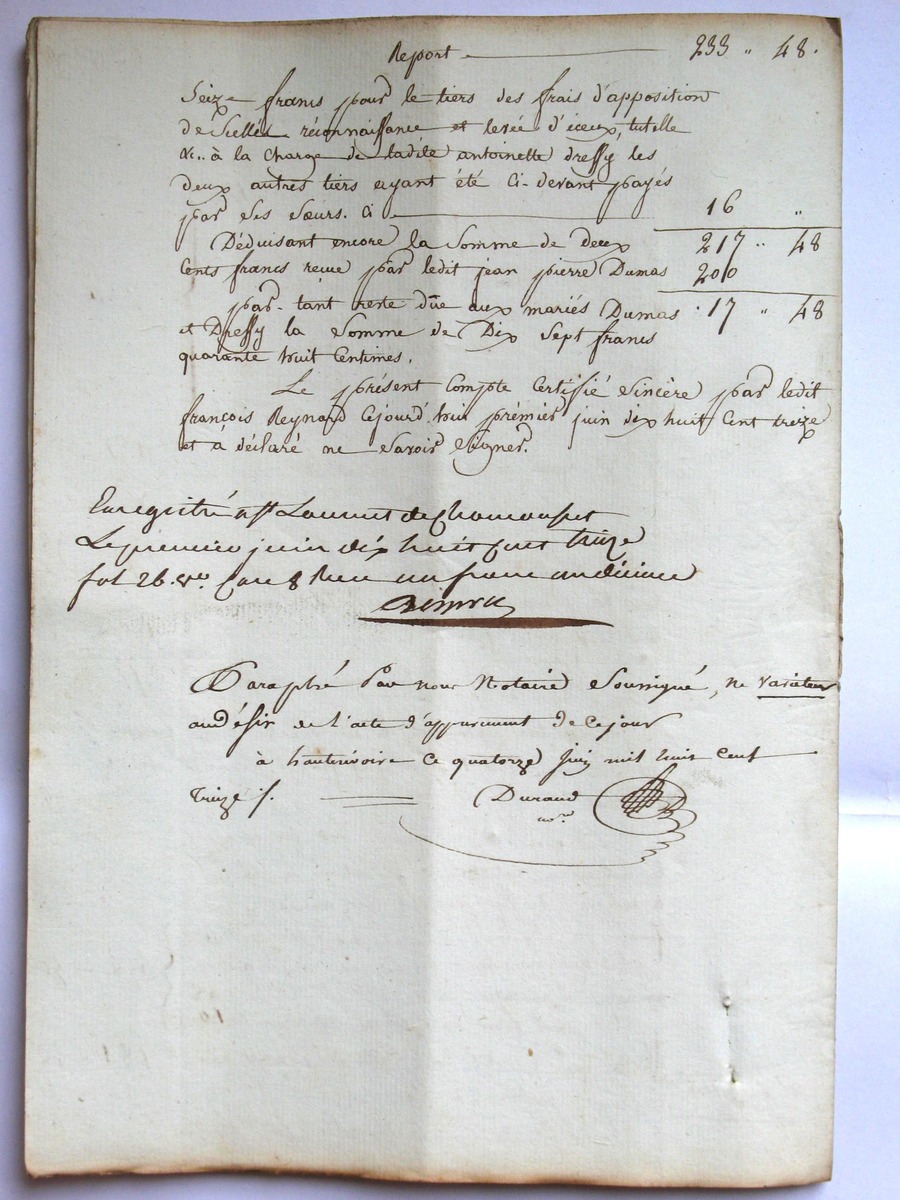 Report 233 " 48.
Seize francs pour le tiers des frais d'apposition
de scellés, réconnaissance et levée d'iceux, tutelle
&.. à la charge de ladite antoinette dressy les
deux autres tiers ayant été ci-devant payés
par ses sœurs. ci 16 "
Déduisant encore la somme de deux 217 " 48
cents francs reçue par ledit jean pierre Dumas 200
par-tant reste düe aux mariés Dumas 17 " 48
et Dressy la somme de Dix sept francs
quarante huit centimes.
Le présent compte certifié sincère par ledit
françois Reynard cejourd'hui prémier juin dix huit cent treize
et a déclaré ne savoir signer.
Enregistré à St Laurent de Chamousset
Le premier juin dix huit cent treize
fol 26. vo. Case 8 Reçu un franc un décime
Paraphé par nous Notaire soussigné, ne varietur
au désir de l'acte d'appurement de ce jour
à hauterivoire ce quatorze juin mil huit cent
treize /. Durand
nore